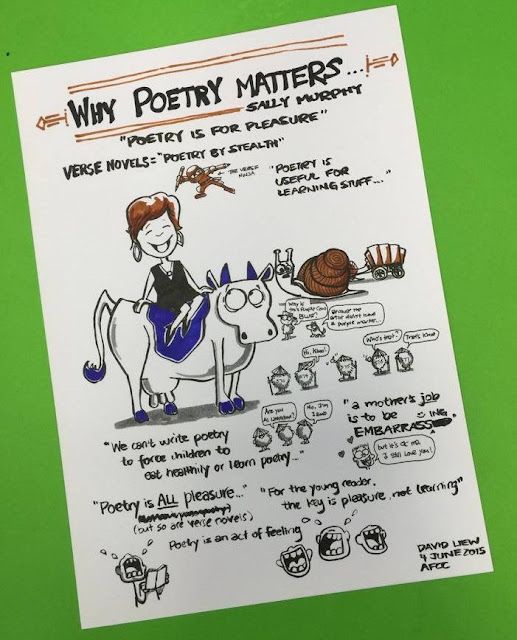 WHY POETRY MATTERS...
SALLY MURPHY
"POETRY IS FOR PLEASURE"
VERSE NOVELS = "POETRY BY STEALTH"
THE VERSE NINJA
"POETRY IS
USEFUL FOR
LEARNING STUFF..."
Why is
this Purple Cow
BLUE?
Because the
artist didn't have
a purple marker.
Hi, Khoo!
Who's that?
That's Khoo
Are you
No, I'm
"We can't write poetry
to force children to
eat healthily or learn poetry..."
"a mother's job
is to be
EMBARRASSING
but it's ok ma,
I still love you!
"Poetry is ALL pleasure..."
(but so are verse novels)
"For the young reader,
the key is pleasure, not learning"
Poetry is an act of feeling
DAVID LIEW
4 JUNE 2015
AFCC